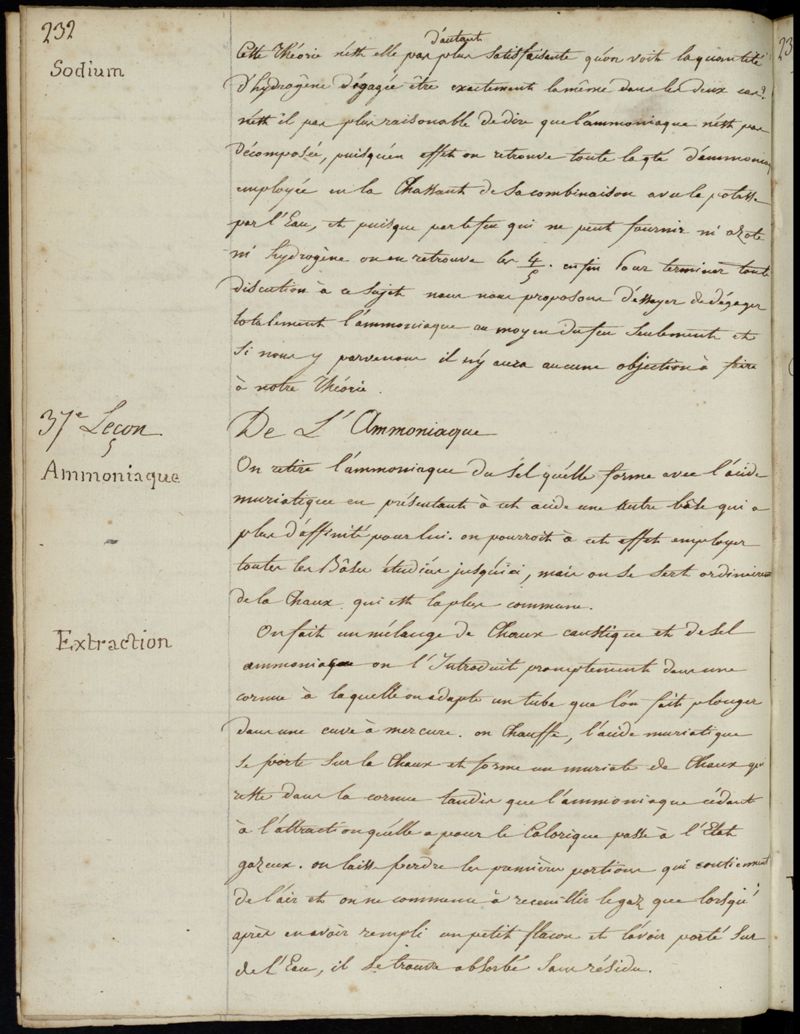 232
Sodium
d'autant
Cette Théorie n'est elle pas plus satisfaisante qu'on voit la quantité
d'hydrogène dégagée être exactement la même dans les deux cas?
n'est il pas plus raisonable de dire que l'ammoniaque n'est pas
décomposée, puisqu'en effet on retrouve toute la qté d'ammoniaq
employée en la Chassant de sa combinaison avec la potasse
par l'Eau, et puisque par le feu qui ne peut fournir ni azote
ni hydrogène on en retrouve les 4/5. enfin Pour terminer toute
discution à ce sujet nous nous proposons d'essayer de dégager
totalement l'ammoniaque au moyen du feu seulement et
si nous y parvenons il n'y aura aucune objection à faire
à notre Théorie.
37e Leçon
De L'Ammoniaque
Ammoniaque
On retire l'ammoniaque du sel qu'elle forme avec l'acide
muriatique en présentant à cet acide une autre bâse qui a
plus d'affinité pour lui. on pourroit à cet effet employer
toutes les Bâses étudiées jusqu'ici, mais on se sert ordinairem
de la Chaux qui est la plus commune.
Extraction
On fait un mélange de Chaux caustique et de sel
ammoniaque on l'Introduit promptement dans une
cornue à laquelle on adapte un tube que l'on fait plonger
dans une cuve à mercure. on Chauffe, l'acide muriatique
se porte sur la Chaux et forme un muriate de Chaux qui
reste dans la cornue tandis que l'ammoniaque cédant
à l'attraction qu'elle a pour le Calorique passe à l'Etat
gazeux. on laisse perdre les premières portions qui contiennent
de l'air et on ne commence à receuillir le gaz que lorsqu'
après en avoir rempli un petit flacon et l'avoir porté sur
de l'Eau, il se trouve absorbé sans résidu.